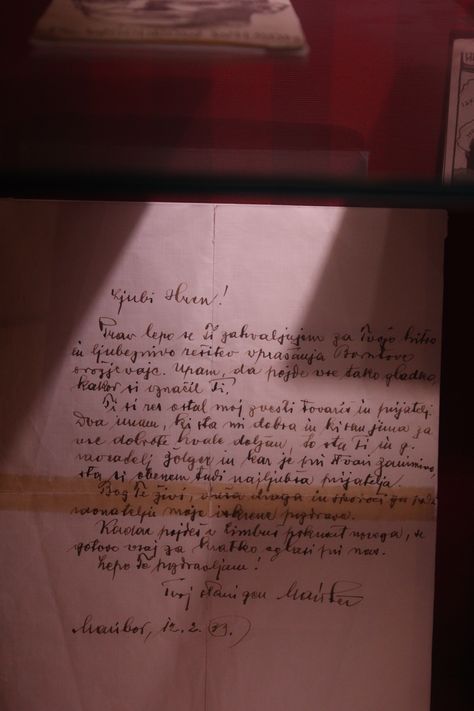 Ljubi Hren!
Prav lepo se Ti zahvaljujem za Tvojo hitro
in ljubeznivo rešitev vprašanja
orožje vaje. Upam, da pojde vse tako gladko,
kakor si označil Ti.
Ti si res ostal moj zvesti tovariš in prijatelj.
Dva imam, ki sta mi dobra in ki sem jima za
vse dobrote hvale dolžan, to sta Ti in g.
in kar je pri stvari zanimivo,
sta si obenem tudi najljubša prijatelja.
Bog Te živi, draga in
moje iskrene pozdrave.
Kadar pojdeš v Limbuš pokusit novega, se
gotovo vsaj za kratko oglasi pri nas.
Lepo Te pozdravljam!
Tvoj
Maribor, 12. 2.